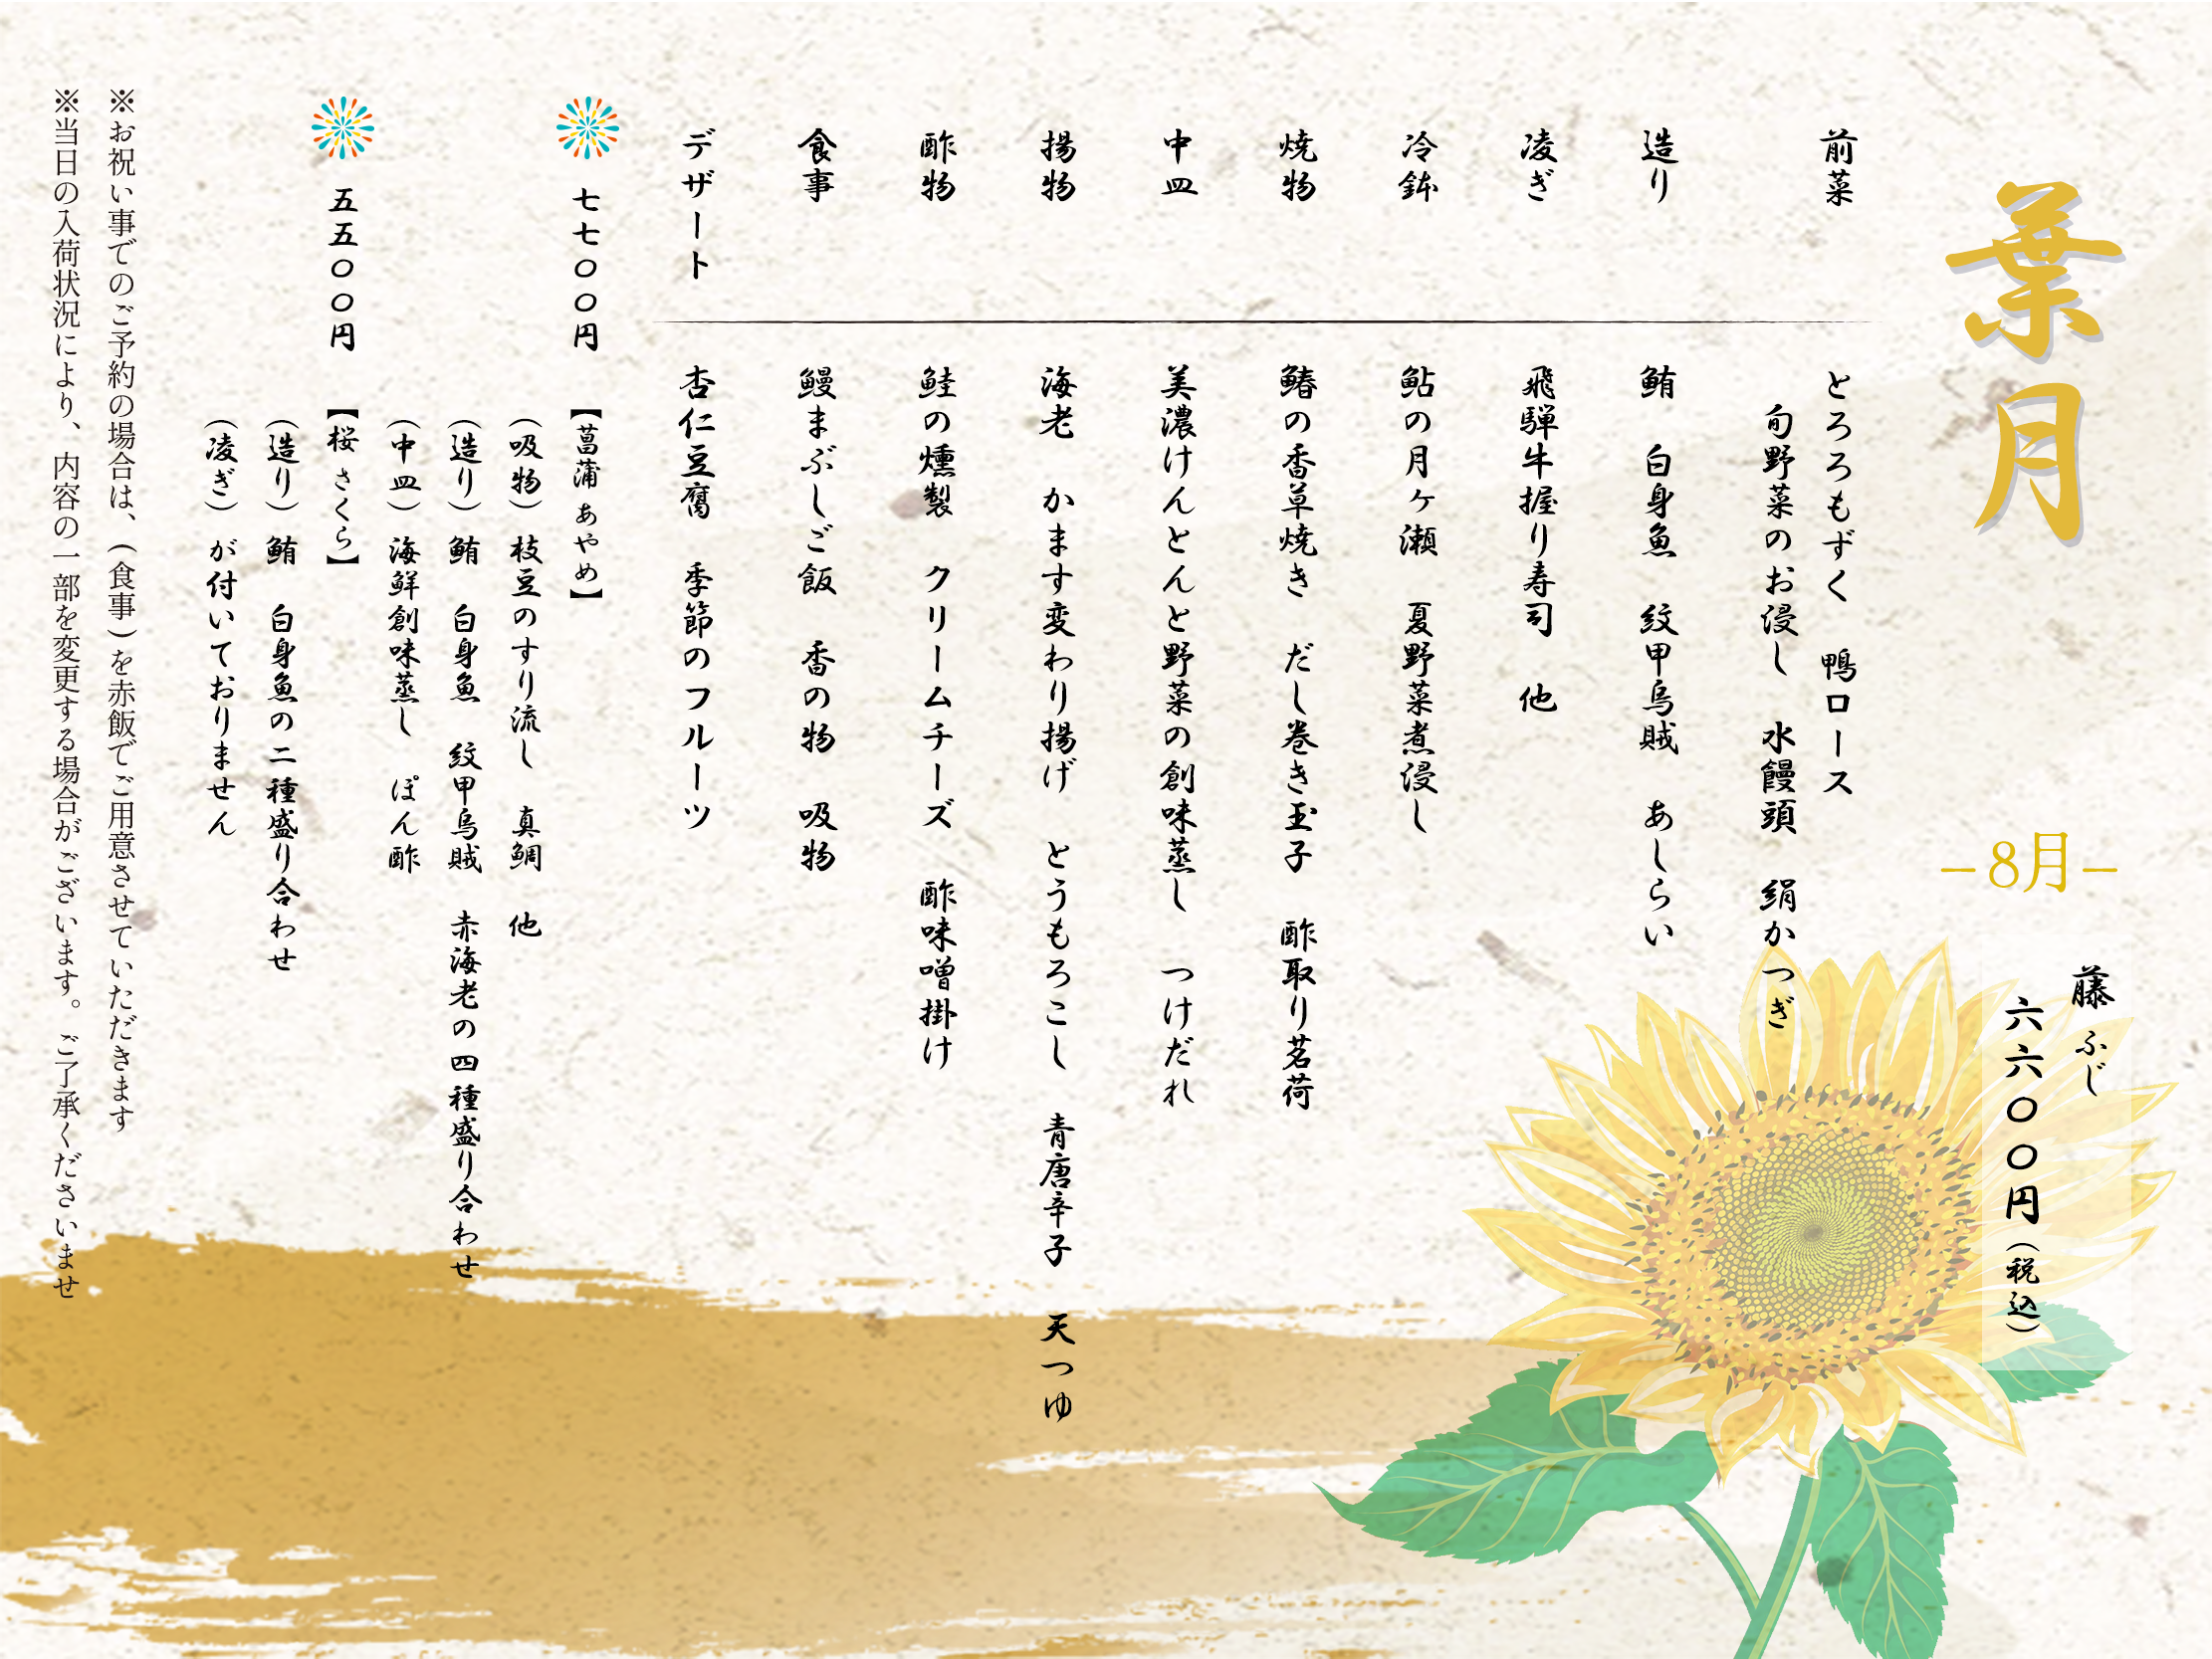 葉月
–8月–
藤 ふじ
六六〇〇円(税込)
前菜 とろろもずく 鴨ロース
旬野菜のお浸し 水饅頭 絹かつぎ
造り 鮪 白身魚 紋甲烏賊 あしらい
凌ぎ 飛騨牛握り寿司 他
冷鉢 鮎の月ヶ瀬 夏野菜煮浸し
焼物 鰆の香草焼き だし巻き玉子 酢取り茗荷
中皿 美濃けんとんと野菜の創味蒸し つけだれ
揚物 海老 かます変わり揚げ とうもろこし 青唐辛子 天つゆ
酢物 鮭の燻製 クリームチーズ 酢味噌掛け
食事 鰻まぶしご飯 香の物 吸物
デザート 杏仁豆腐 季節のフルーツ
七七〇〇円 【菖蒲 あやめ】
(吸物) 枝豆のすり流し 真鯛 他
(造り) 鮪 白身魚 紋甲烏賊 赤海老の四種盛り合わせ
(中皿) 海鮮創味蒸し ぽん酢
五五〇〇円 【桜 さくら】
(造り) 鮪 白身魚の二種盛り合わせ
(凌ぎ) が付いておりません
※お祝い事でのご予約の場合は、(食事)を赤飯でご用意させていただきます
※当日の入荷状況により、内容の一部を変更する場合がございます。ご了承くださいませ